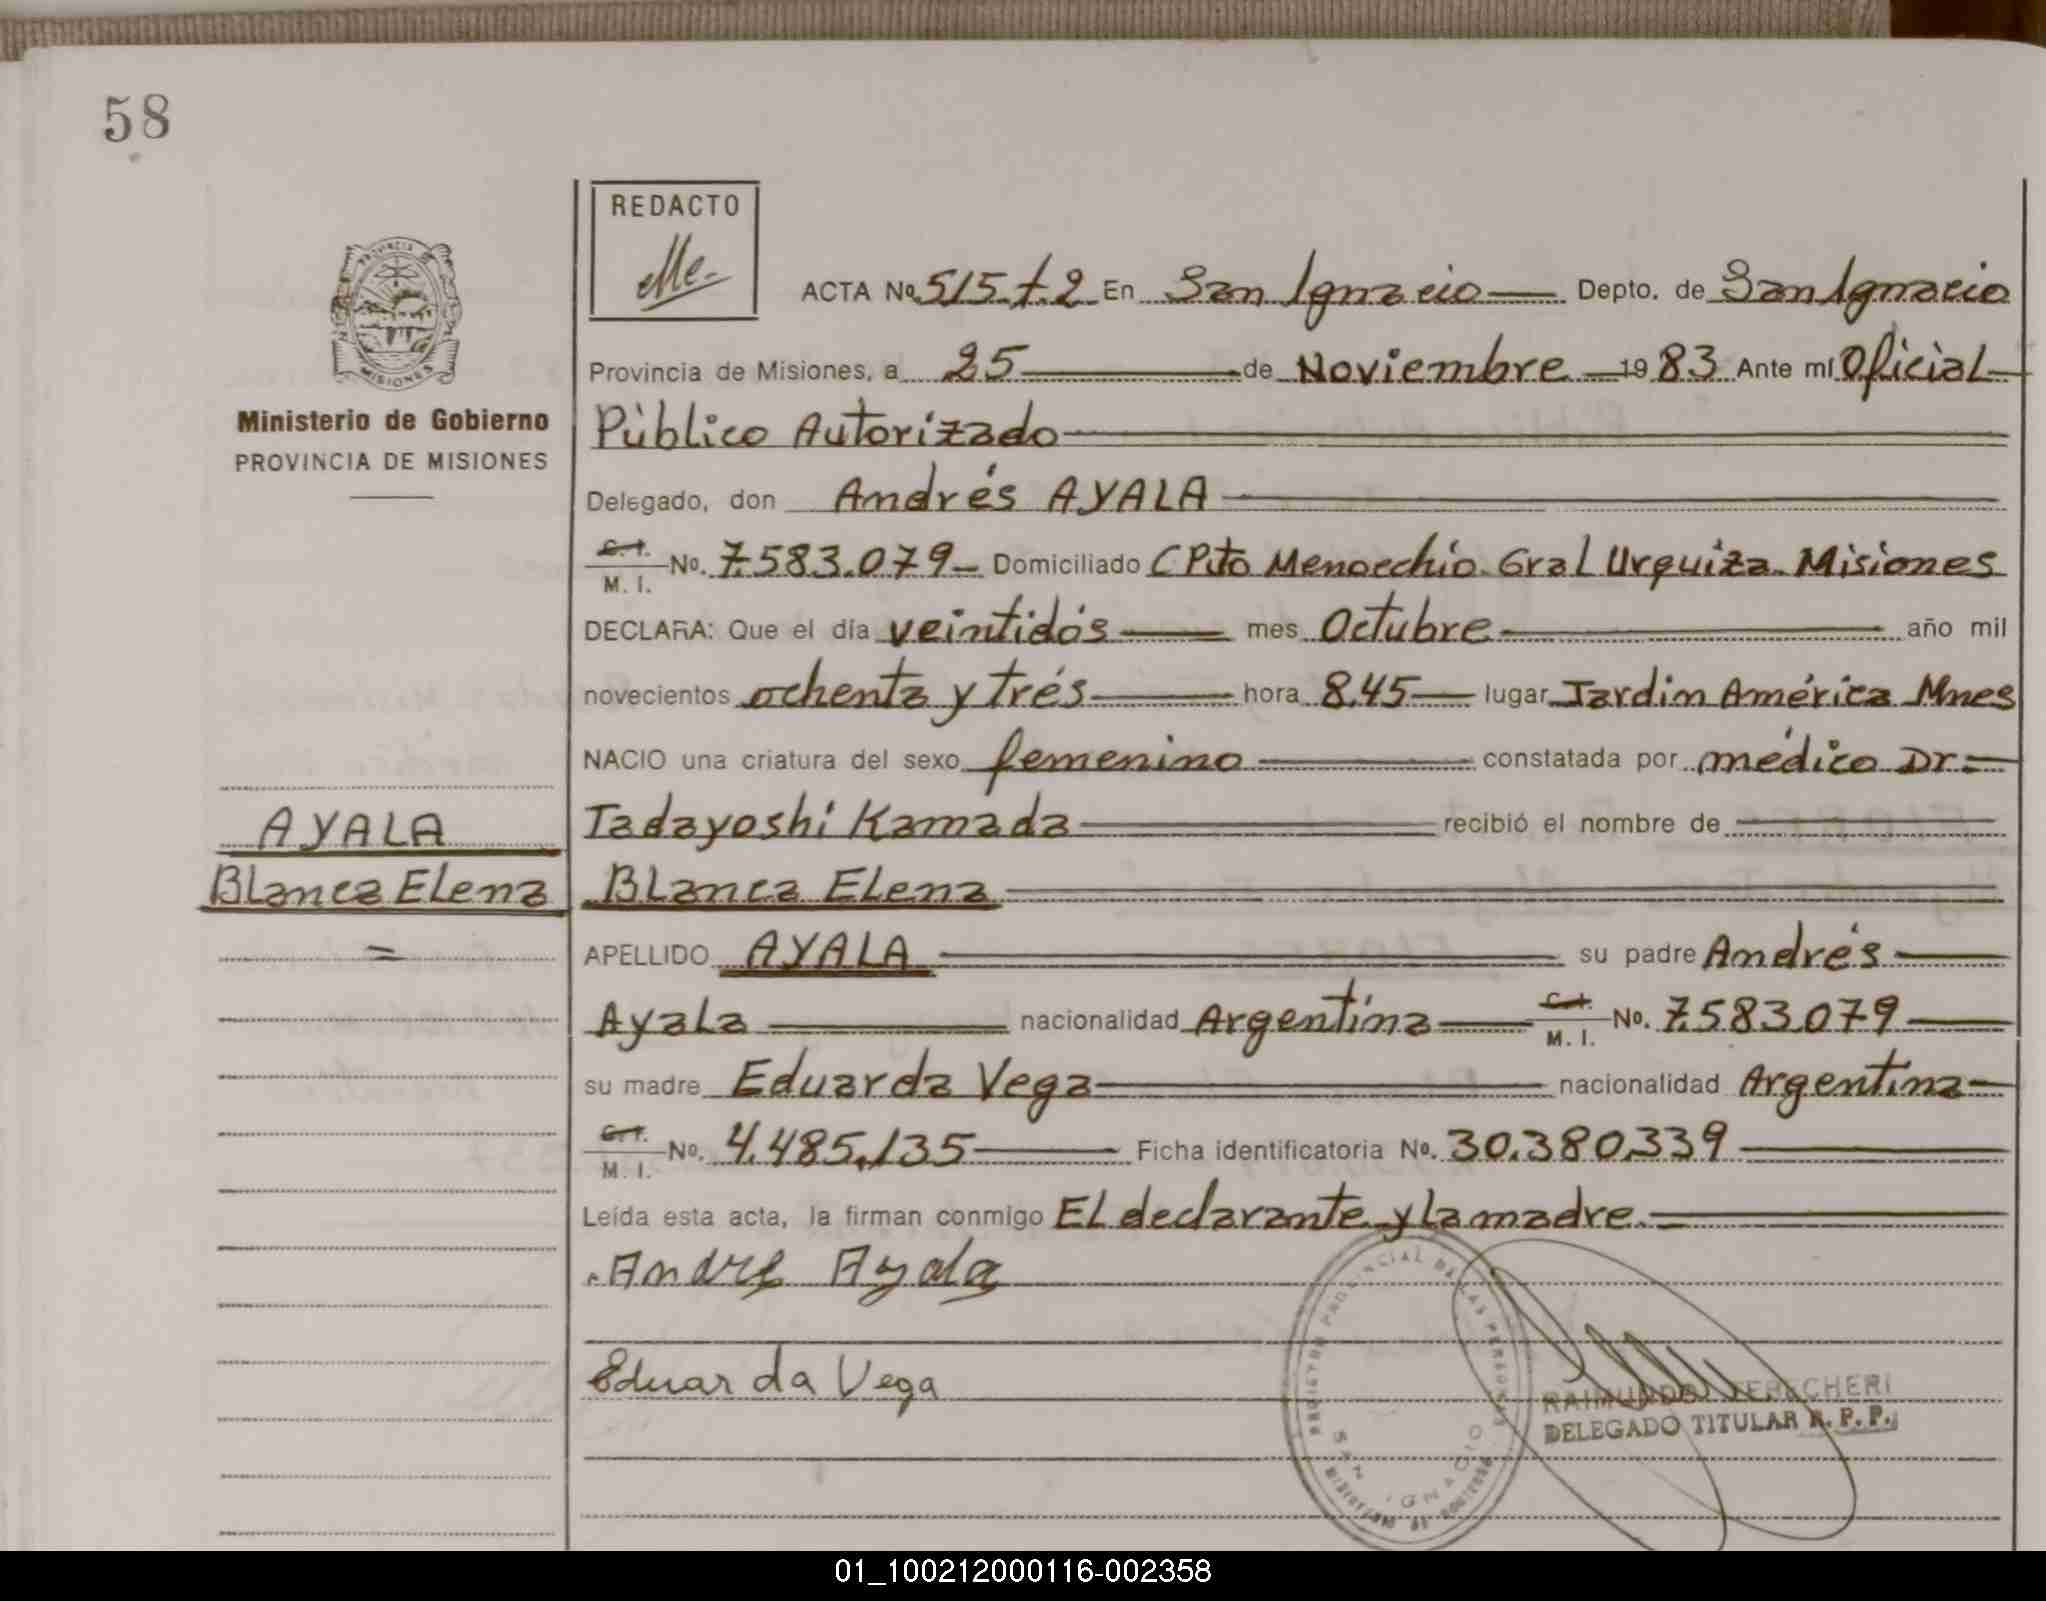 58
REDACTO
PROVINCIA DE
MISIONES
Ministerio de Gobierno
PROVINCIA DE MISIONES
ACTA Nº 515.t.2 En San Ignacio Depto. de San Ignacio
Provincia de Misiones, a 25 de Noviembre 1983 Ante mí Oficial
Público Autorizado
Delegado, don Andrés AYALA
C.I. M.I. No. 7.583.079 Domiciliado C Pito Menoechio. Gral Urquiza. Misiones
DECLARA: Que el día veintidós mes Octubre año mil
novecientos ochenta y trés hora 8.45 lugar Jardin América Mnes
NACIO una criatura del sexo femenino constatada por médico Dr =
Tadayoshi Kamada recibió el nombre de
AYALA
Blanca Elena
=
Blanca Elena
APELLIDO AYALA su padre Andrés
Ayala nacionalidad Argentina C.I. M.I. No. 7.583.079
su madre Eduarda Vega nacionalidad Argentina
C.I. M.I. No. 4.485.135 Ficha identificatoria No. 30.380.339
Leída esta acta, la firman conmigo El declarante y la madre.
Andre Ayala
Eduarda Vega
REGISTRO PROVINCIAL DE LAS PERSONAS
SAN IGNACIO
MINISTERIO DE GOBIERNO
RAIMUNDO
DELEGADO TITULAR R. P. P.
01_100212000116-002358